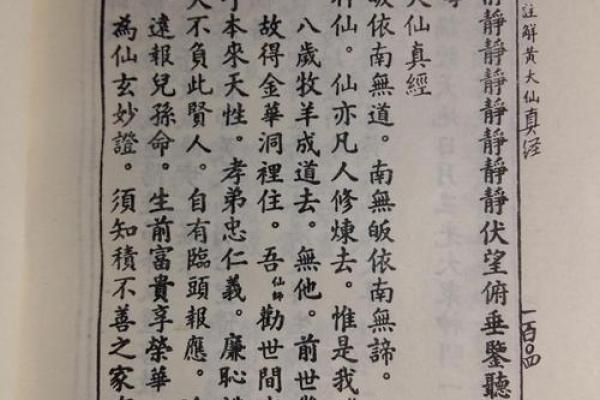 註解黃大仙真經
一百〇四
靜靜靜靜靜靜靜伏望俯垂鑒聽
大仙真經
皈依南無道。南無皈依南無諦。
神仙。仙亦凡人修煉去。惟是我
八歲牧羊成道去。無他。前世
故得金華洞裡住。吾仙師勸世間
本來天性。孝弟忠仁義。廉恥
不負此賢人。自有臨頭報應。
遠報兒孫命。生前富貴享榮華
為仙玄妙證。須知積不善之家